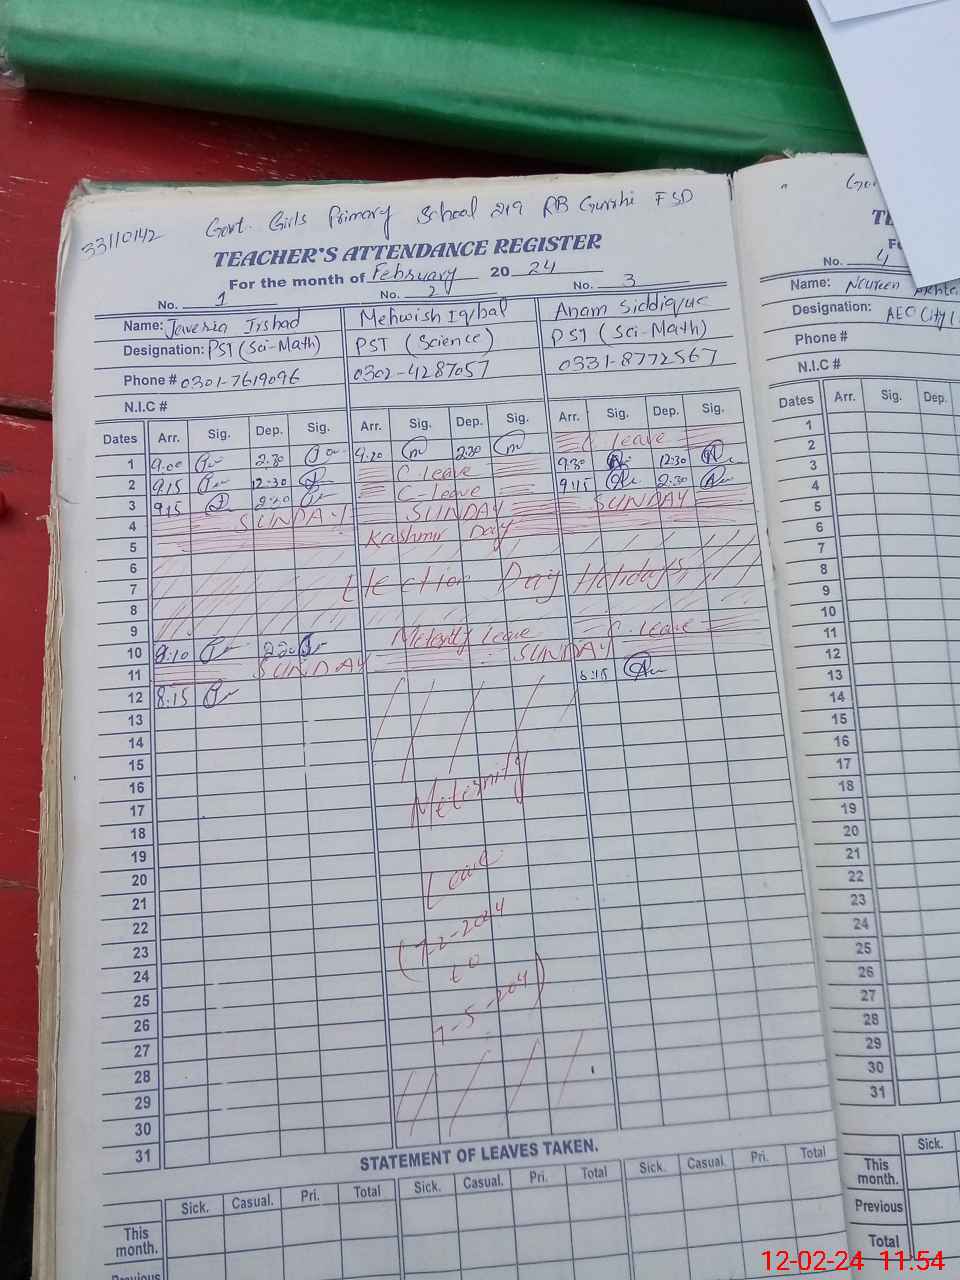 33110142
Govt. Girls Primary School 219 RB Gurshi FSD
TEACHER'S ATTENDANCE REGISTER
For the month of February 2024
No. 1 No. 2 No. 3
Name: Javeria Irshad Mehwish Iqbal Anam Siddique
Designation: PST (Sci-Math) PST (Science) PST (Sci-Math)
Phone # 0301-7619096 0302-4287057 0331-8772567
N.I.C #
Dates Arr. Sig. Dep. Sig. Arr. Sig. Dep. Sig. Arr. Sig. Dep. Sig.
1 9:00 2:30 9:20 2:30 C leave
2 9:15 12:30 C-leave 9:30 12:30
3 9:15 2:20 C-leave 9:15 2:30
4 SUNDAY SUNDAY SUNDAY
5 Kashmir Day
6
7 Election Day Holidays
8
9
10 8:10 2:20 Meternity Leave C. leave
11 SUNDAY SUNDAY
12 8:15 8:15
13
14
15
16
17 Meternity
18
19
20 Leave
21
22
23
24 to
25
26
27
28
29
30
31
STATEMENT OF LEAVES TAKEN.
Sick. Casual. Pri. Total Sick. Casual. Pri. Total Sick. Casual. Pri. Total
This month.
Previous
No. 4
Name: Noureen
Designation: AEO City
Phone #
N.I.C #
Dates Arr. Sig. Dep.
1
2
3
4
5
6
7
8
9
10
11
12
13
14
15
16
17
18
19
20
21
22
23
24
25
26
27
28
29
30
31
Sick.
This month.
Previous
Total
12-02-24 11:54